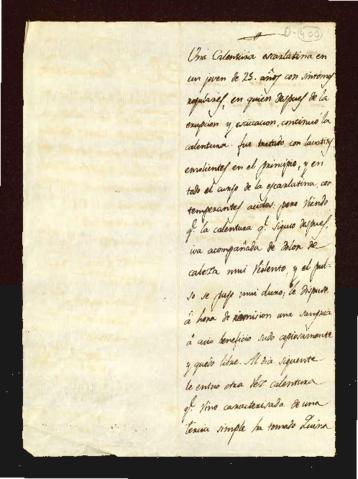 D-400
Una Calentura escarlatina en
un joven de 25. años con sintomas
regulares, en quien despues de la
erupcion y exicacion, continuò la
calentura. fue tratado con
emolientes en el principio, y en
todo el curso de la escarlatina, con
temperantes acidos. pero viendo
q.e la calentura q.e siguio despues,
iva acompañada de dolor de
cabeza mui violento, y el pul-
so se puso mui duro, le dispuse
à hora de remision una sangria
à cuio beneficio sudo copiosamente
y quedo libre. Al dia siguiente
le entro otra vez calentura
q.e vino caracterisada de una
tercia simple ha tomado Quina